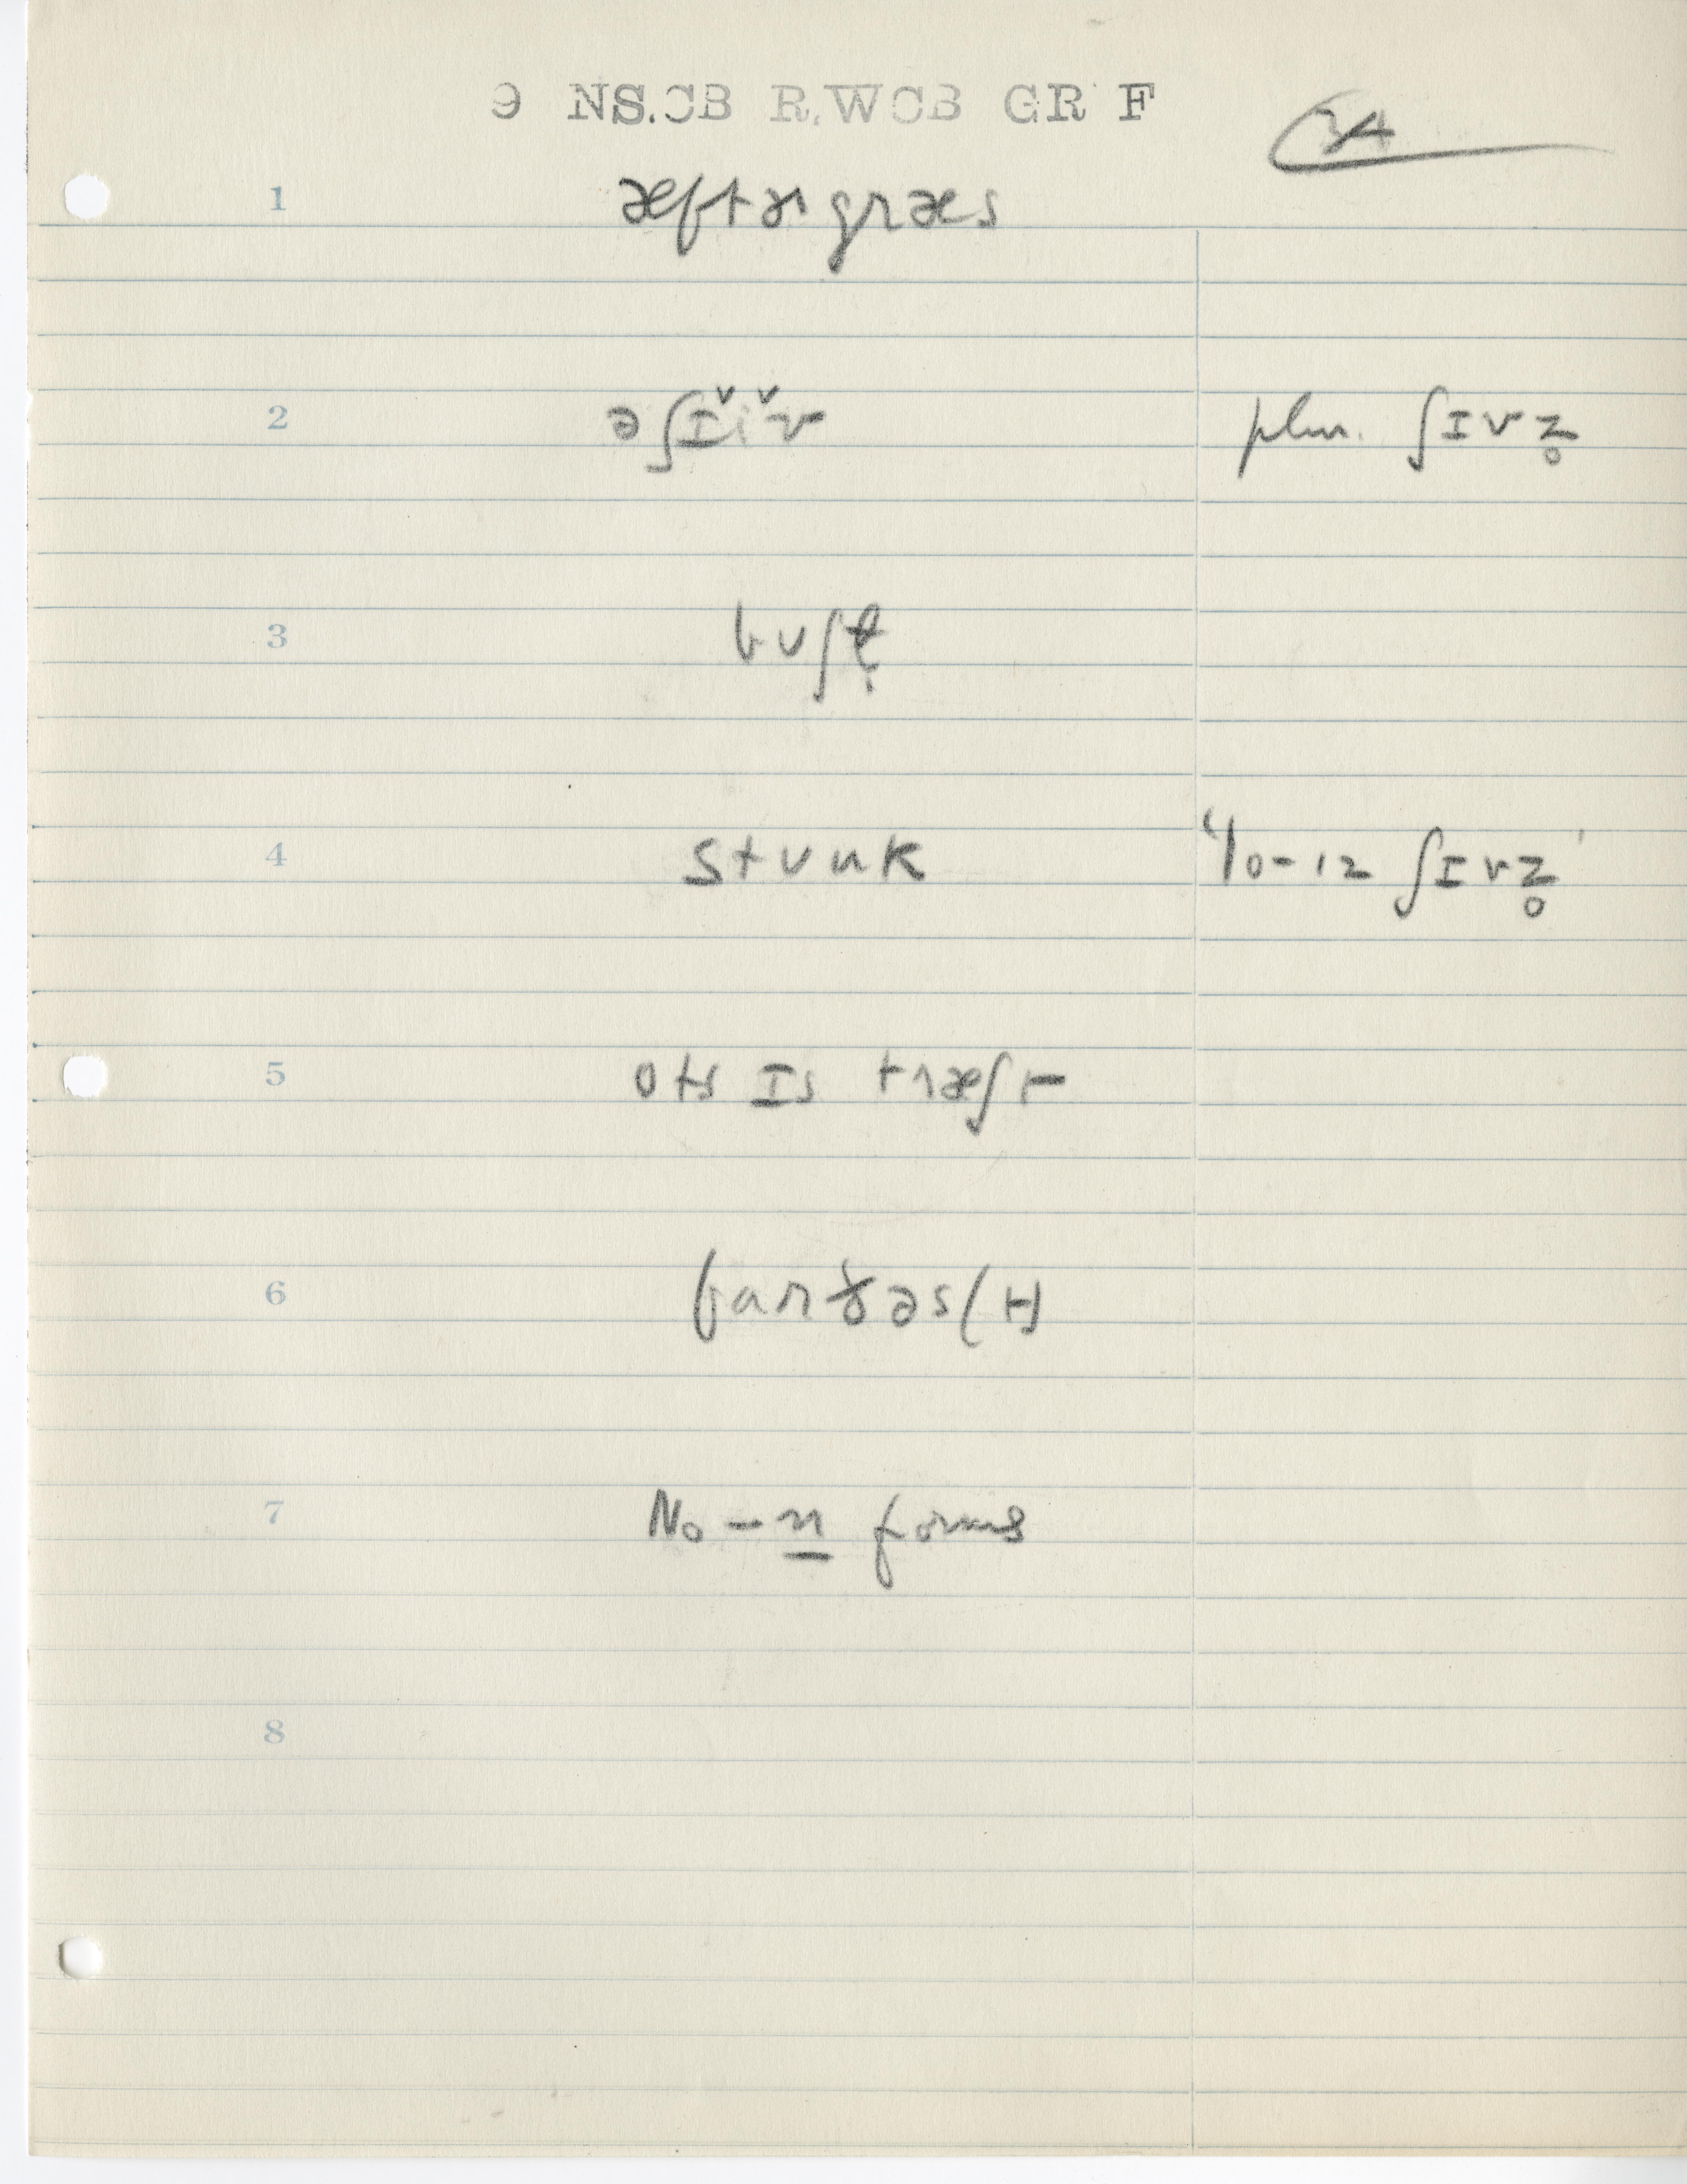 9 NS.CB R.WCB GR F
3A
1 æftɚgræs
2 ə ʃɪ̆ĭv plur. ʃɪvz̥
3 bʊʃɫ̩
4 stʊuk '10-12 ʃɪvz̥'
5 ots ɪs træʃt
6 farðəs(t)
7 No -n forms
8